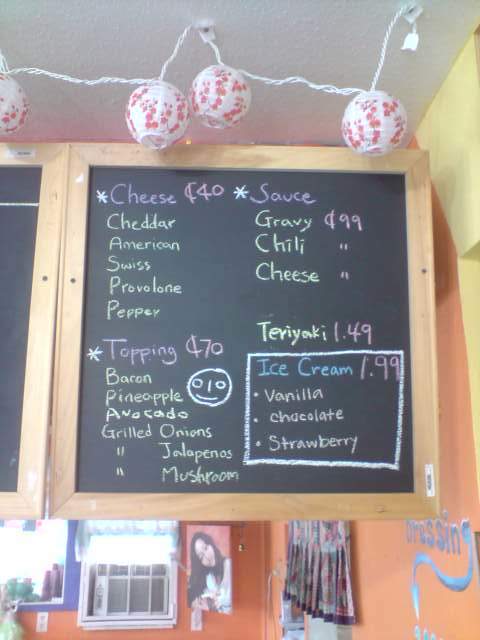 * Cheese ¢40
Cheddar
American
Swiss
Provolone
Pepper
* Topping ¢70
Bacon
Pineapple
Avocado
Grilled Onions
" Jalapenos
" Mushroom
* Sauce
Gravy ¢99
Chili "
Cheese "
Teriyaki 1.49
Ice Cream 1.99
• Vanilla
• chocolate
• Strawberry
Dressing